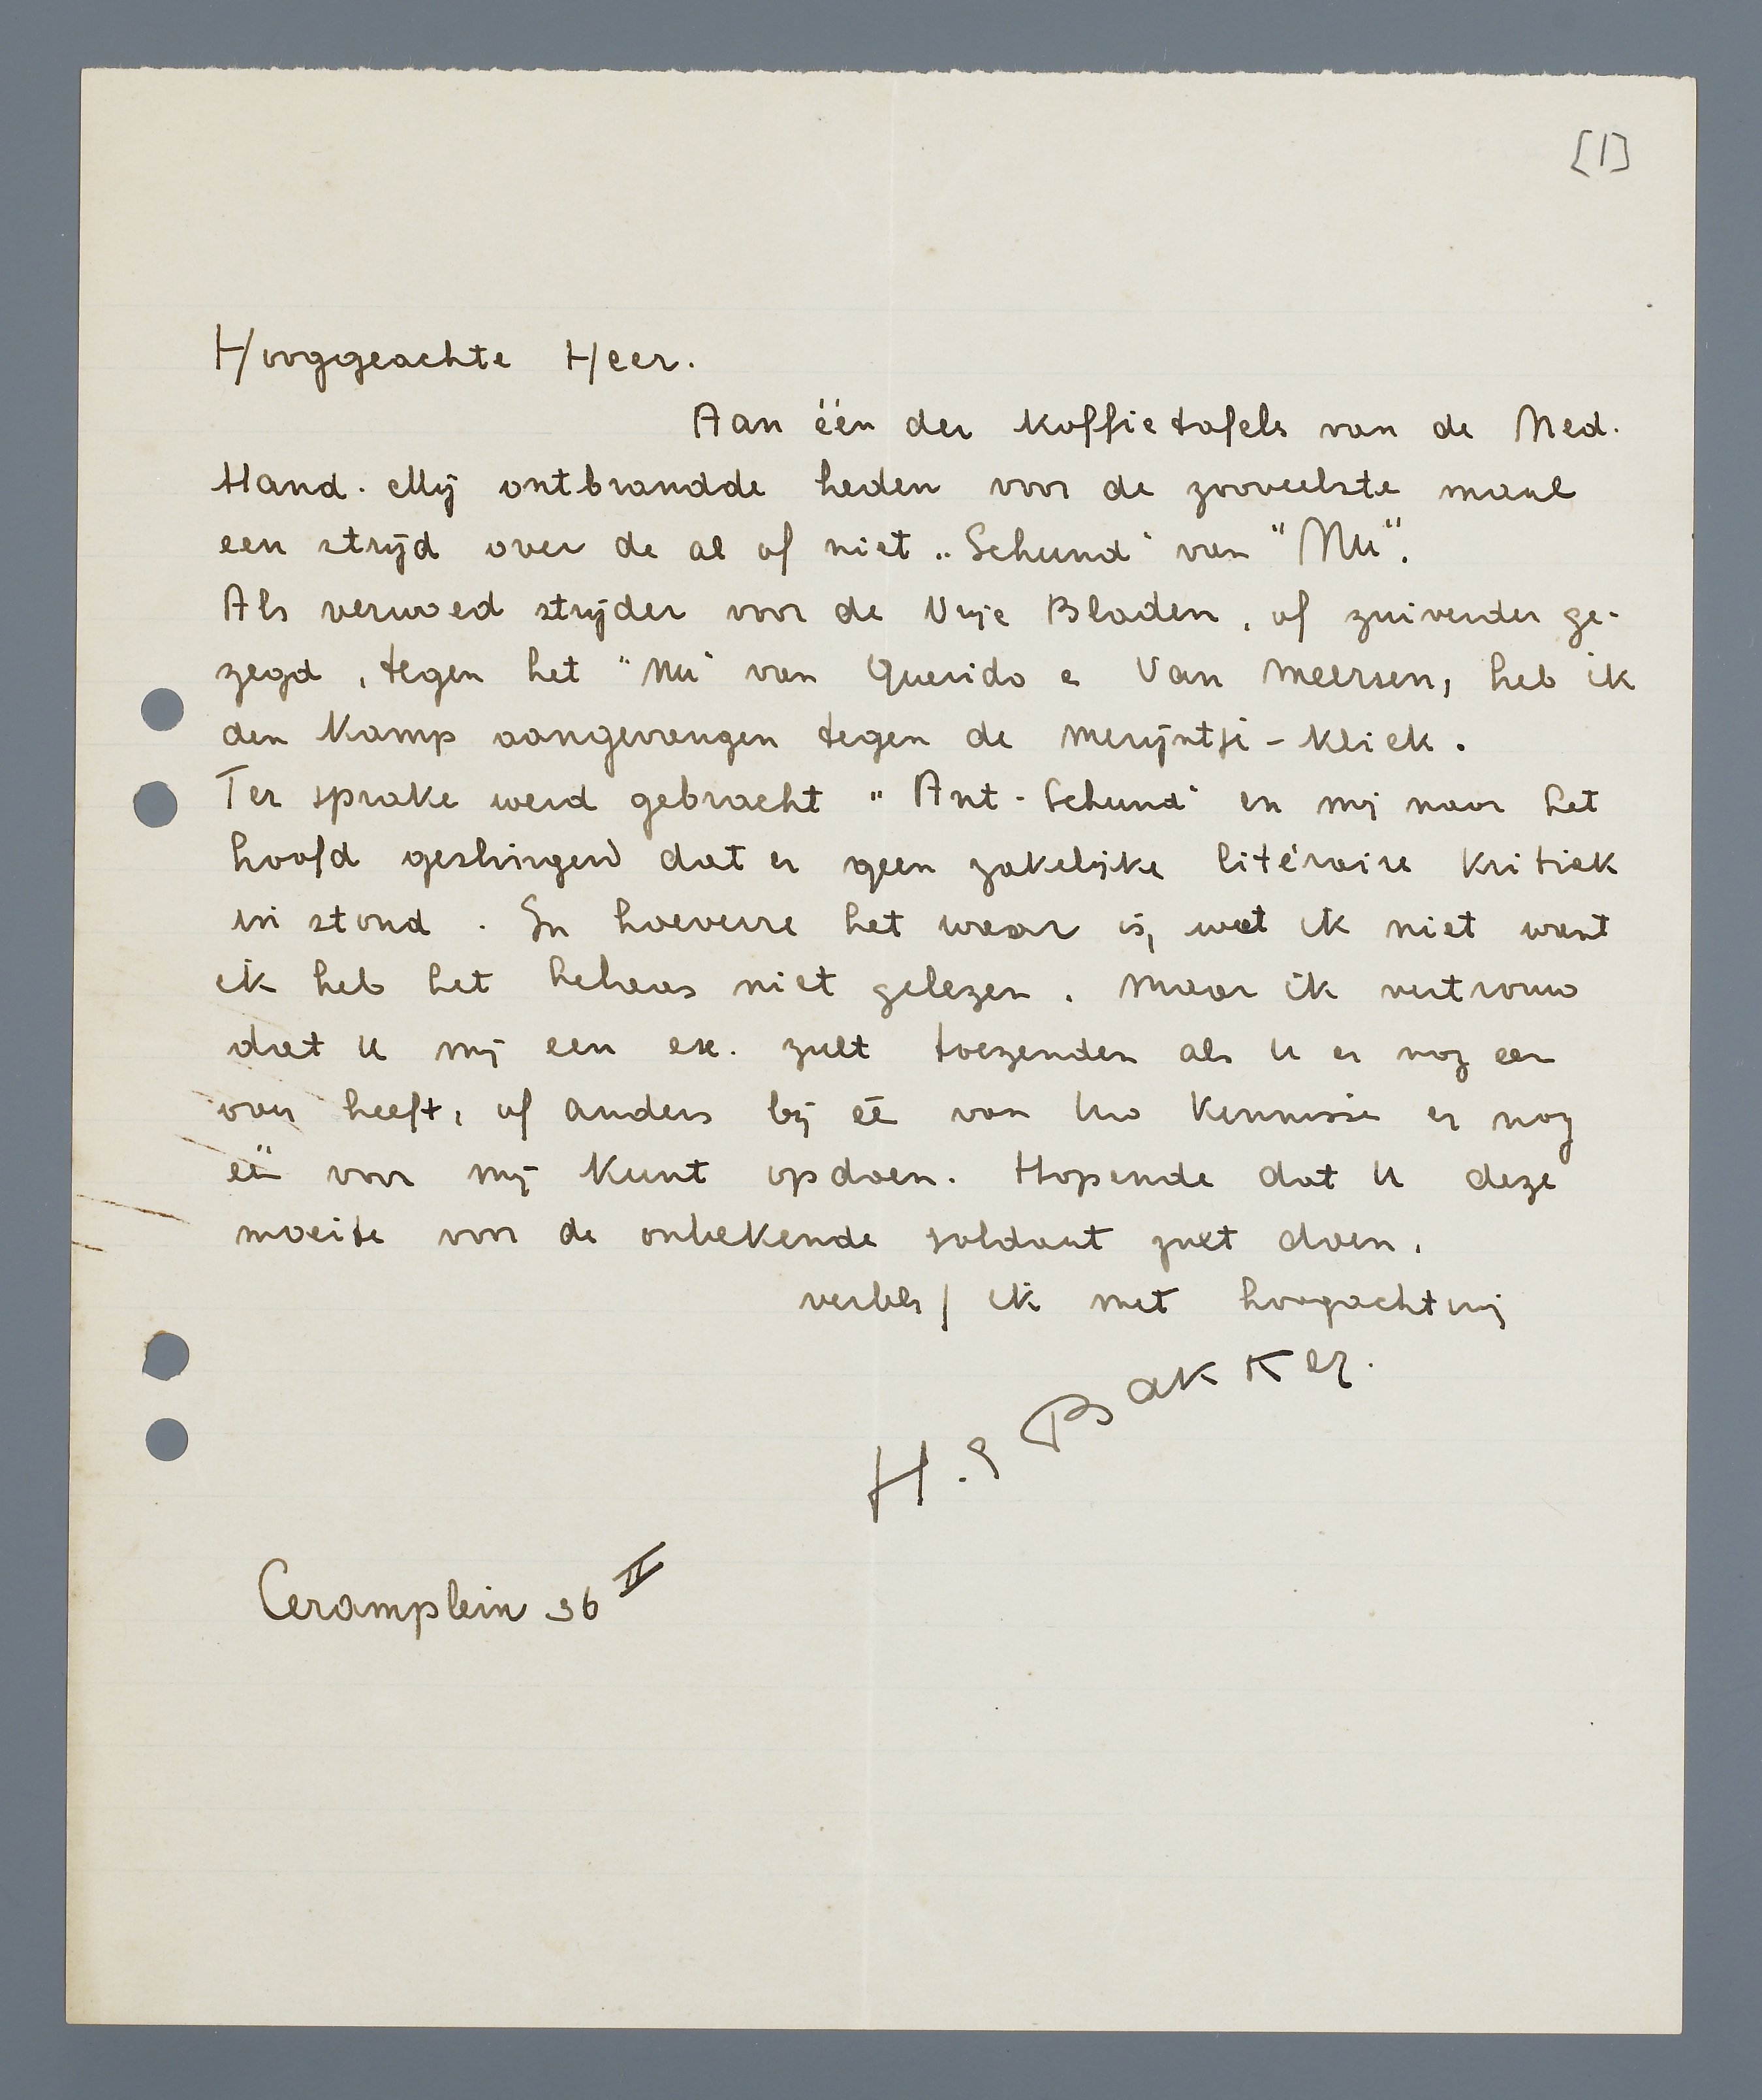 [1]
Hooggeachte Heer.
Aan één der koffietafels van de Ned.
Hand. Mij ontbrandde heden voor de zooveelste maal
een strijd over de al of niet „Schund" van "Nu".
Als verwoed strijder voor de Vrije Bladen, of zuiverder ge-
zegd, tegen het "Nu" van Querido e Van Meersen, heb ik
den Kamp aangevangen tegen de Merijntje-kliek.
Ter sprake werd gebracht "Ant-Schund" en mij naar het
hoofd geslingerd dat er geen zakelijke litéraire kritiek
in stond. In hoeverre het waar is, weet ik niet want
ik heb het helaas niet gelezen. Maar ik vertrouw
dat U mij een ex. zult toezenden als U er nog een
van heeft, of anders bij éé van Uw kennisse er nog
éé voor mij kunt opdoen. Hopende dat U deze
moeite voor de onbekende soldaat zult doen,
verblij/ ik met hoogachting
H. S Bakker.
Ceramplein 36 II